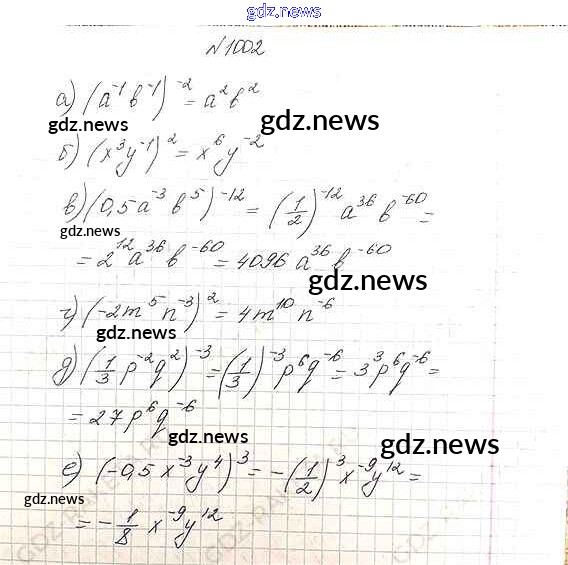 gdz.news
№1002
а) (a⁻¹b⁻¹)⁻² = a²b²
gdz.news
gdz.news
б) (x³y⁻¹)² = x⁶y⁻²
в) (0,5a⁻³b⁵)⁻¹² = (1/2)⁻¹² a³⁶b⁻⁶⁰ =
gdz.news
= 2¹²a³⁶b⁻⁶⁰ = 4096 a³⁶b⁻⁶⁰
gdz.news
г) (-2m⁵n⁻³)² = 4m¹⁰n⁻⁶
gdz.news
д) (1/3 p⁻²q²)⁻³ = (1/3)⁻³p⁶q⁻⁶ = 3³p⁶q⁻⁶ =
= 27p⁶q⁻⁶
gdz.news
gdz.news
е) (-0,5x⁻³y⁴)³ = -(1/2)³x⁻⁹y¹² =
gdz.news
= -1/8 x⁻⁹y¹²